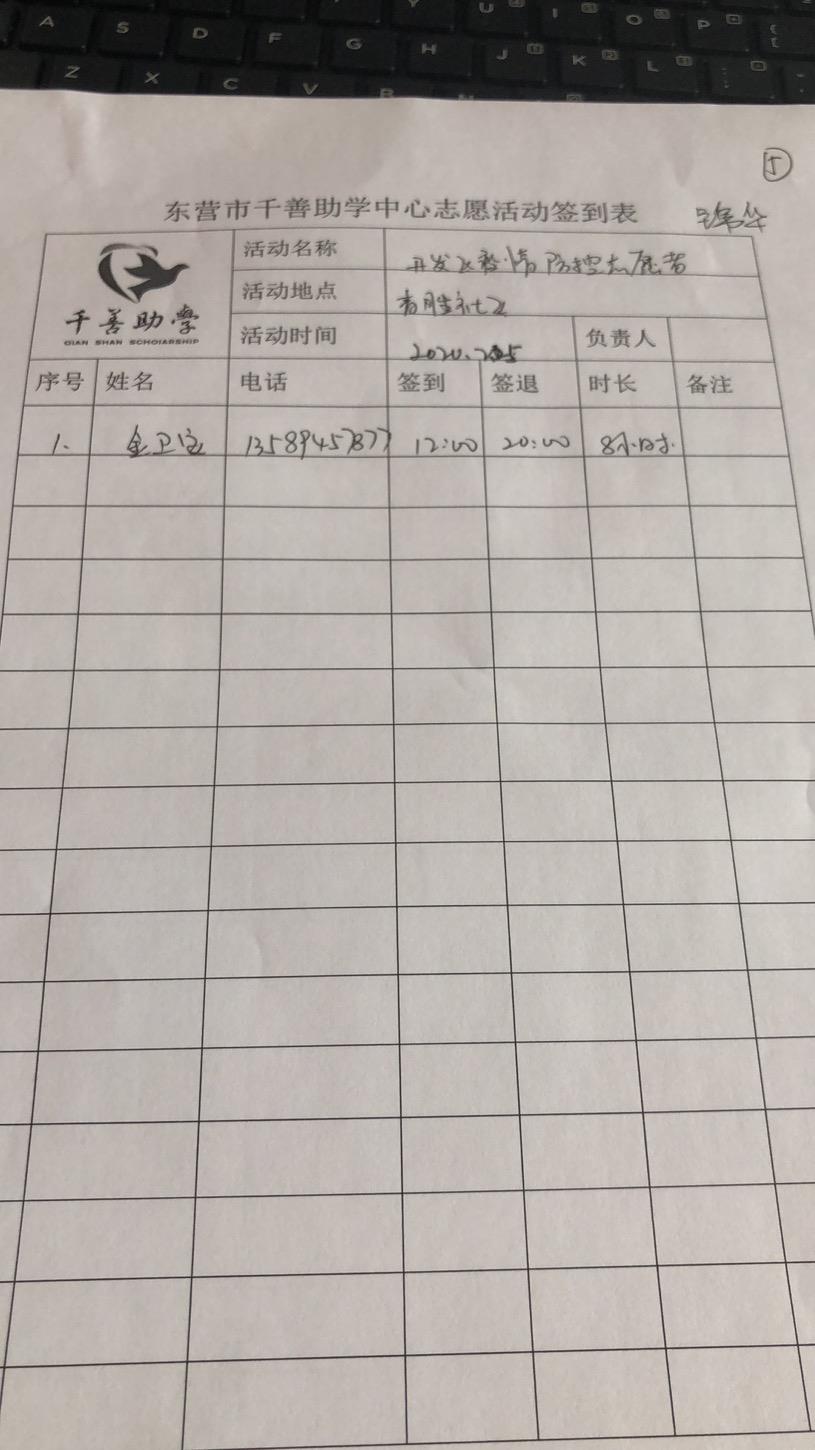 A S D F G H J K L
Z X C V B
U I O P
5
东营市千善助学中心志愿活动签到表
千善助學
QIAN SHAN SCHOlARSHIP
活动名称 开发区疫情防控志愿者
活动地点 青胜社区
活动时间 2020. 负责人
序号 姓名 电话 签到 签退 时长 备注
1. 金卫宝 13589457877 12:00 20:00 8小时